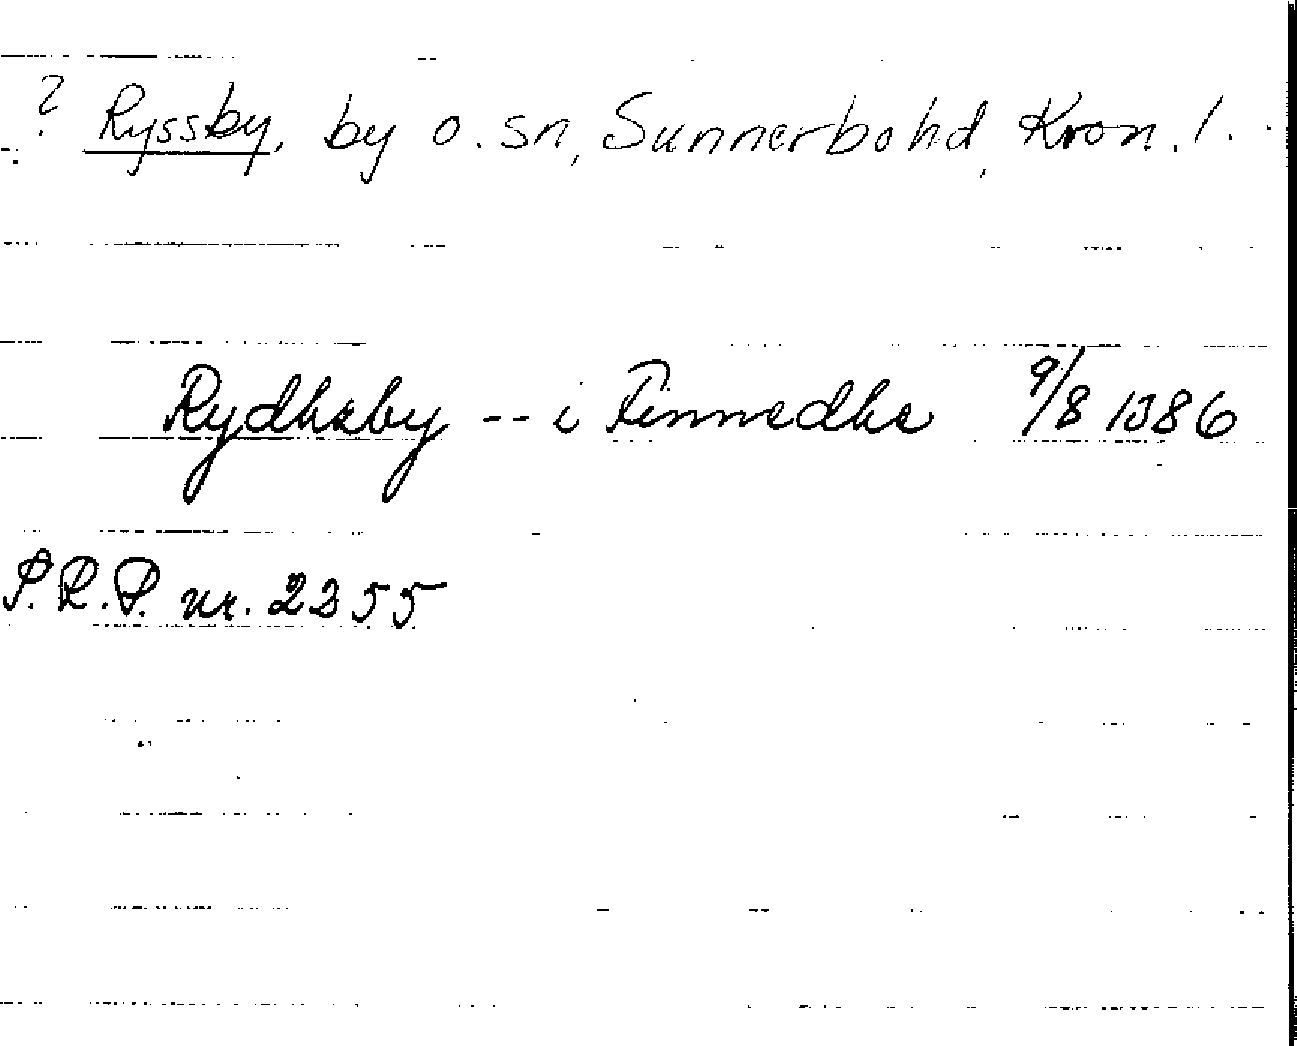 ? Ryssby, by o. sn, Sunnerbo hd, Kron. l.
Rydhzby -- i Finnedhe 9/8 1386
S.R.P. nr. 2255